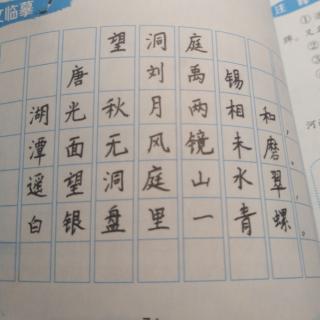 文临摹
望洞庭
唐 刘禹锡
湖光秋月两相和，
潭面无风镜未磨。
遥望洞庭山水翠，
白银盘里一青螺。